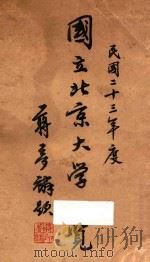 民國二十三年度
國立北京大学
蔣夢麟題